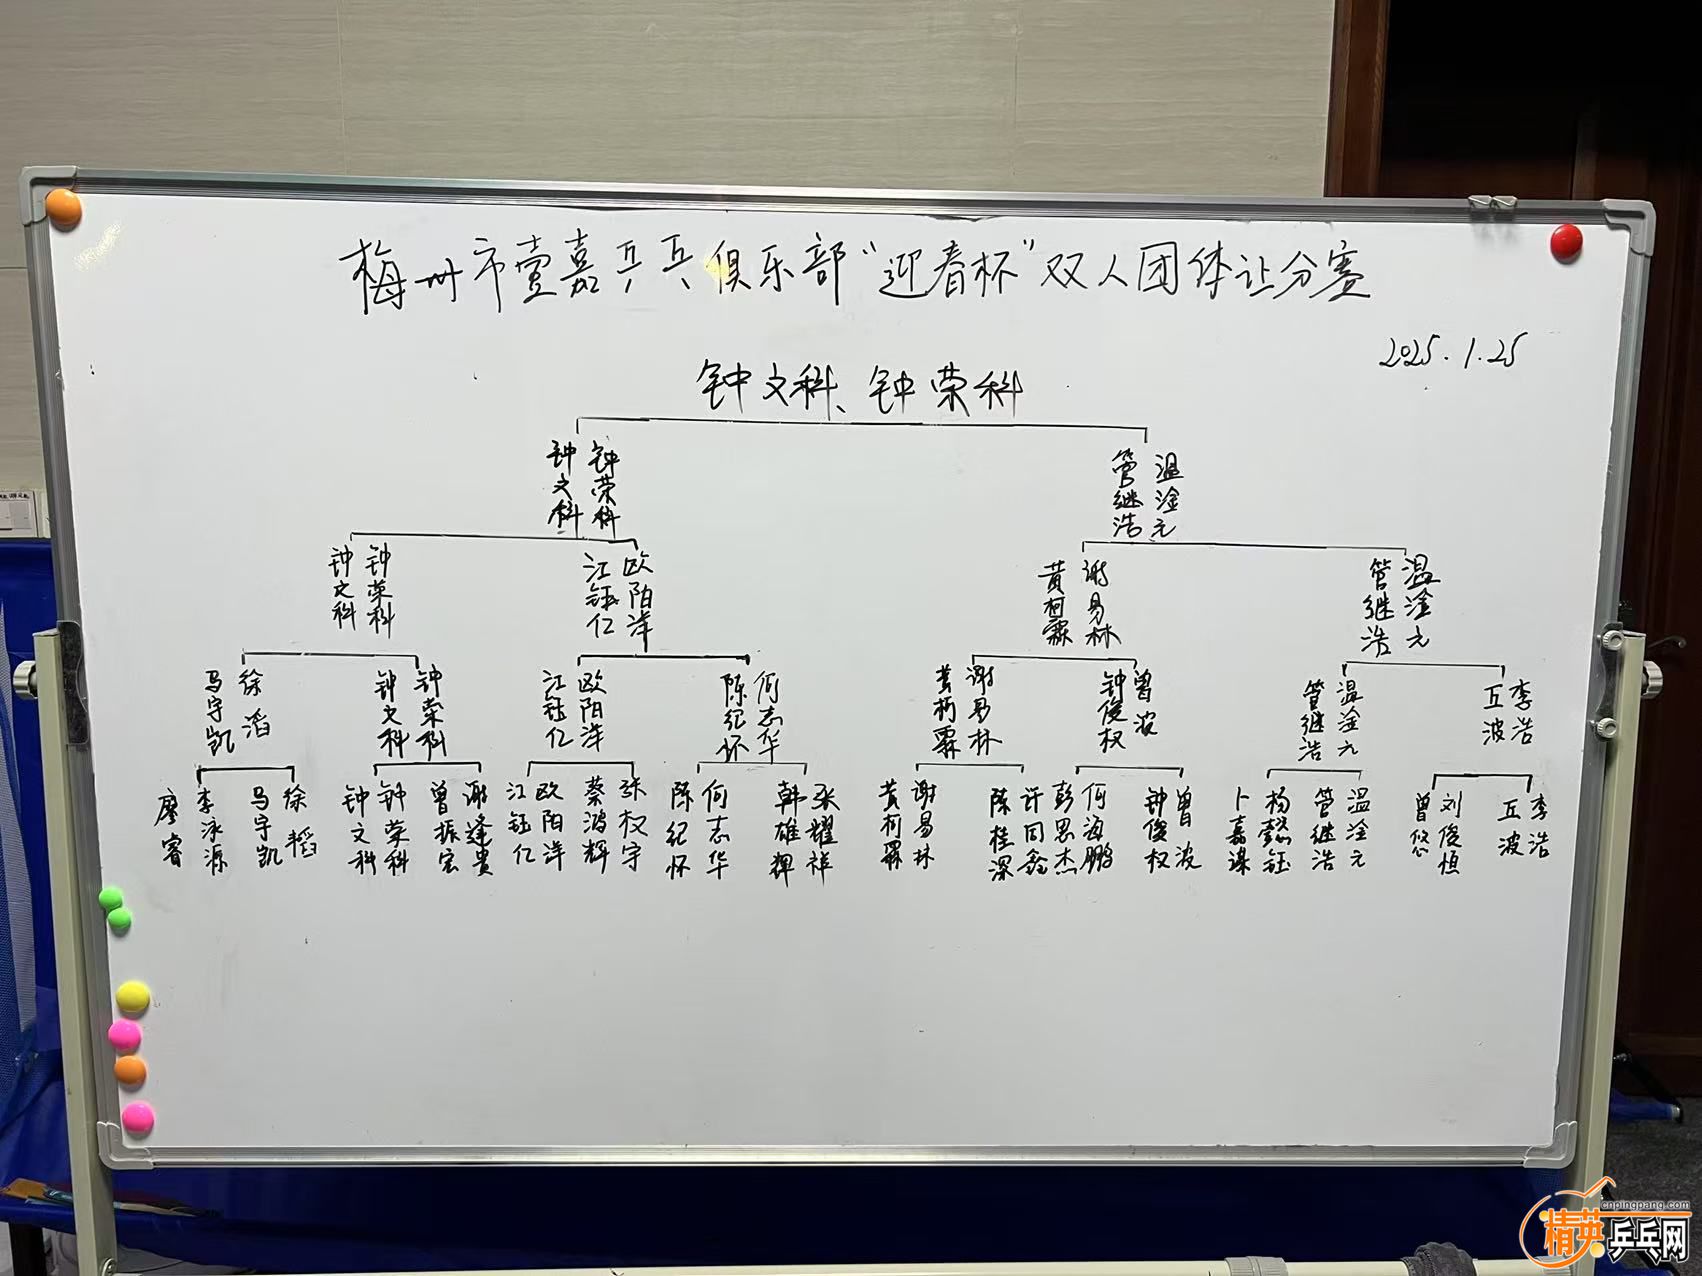 梅州市壹嘉乒乓俱乐部“迎春杯”双人团体让分赛
2025.1.25
钟文科、钟荣科
钟文科 钟荣科
管继浩 温淦元
钟文科 钟荣科
江钰仁 欧阳洋
黄柯霖 谢易林
管继浩 温淦元
马宇凯 徐滔
钟文科 钟荣科
江钰仁 欧阳洋
陈纪怀 何志华
黄柯霖 谢易林
钟俊权 曾波
管继浩 温淦元
丘波 李浩
廖睿 李泳源
马宇凯 徐韬
钟文科 钟荣科
曾振宏 谢逢贵
江钰仁 欧阳洋
蔡鸿辉 张权宇
陈纪怀 何志华
韩雄辉 张耀祥
黄柯霖 谢易林
陈桂深 许同鑫
彭思杰 何海鹏
钟俊权 曾波
卜嘉谋 杨懿钰
管继浩 温淦元
曾悠 刘俊恒
丘波 李浩
cnpingpang.com
精英乒乓网